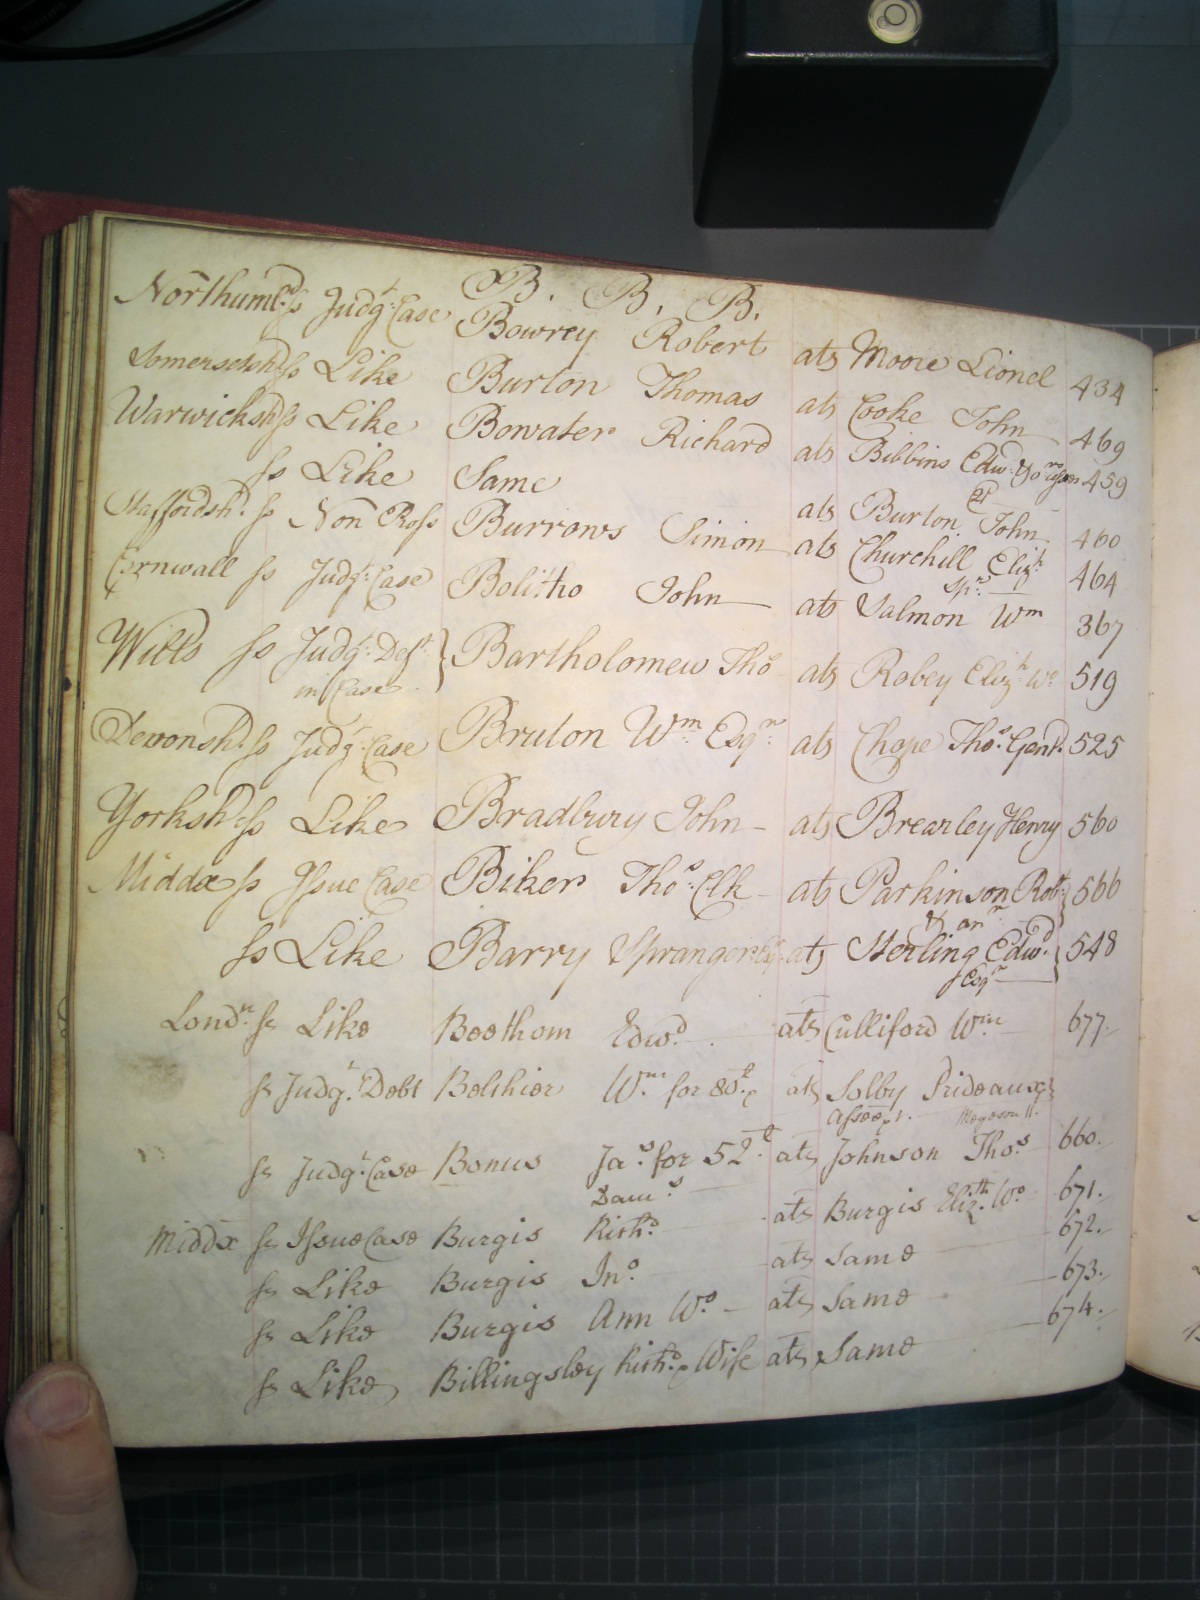 B. B. B.
Northumbd ss Judgt Case Bowrey Robert ats Moore Lionel 434
Somersetsh ss Like Burton Thomas ats Cooke John 469
Warwicksh ss Like Bowater Richard ats Bibbins Edwd 459
ss Like Same ats Burton John 460
Staffordsh. ss Non Ross Burrows Simon ats Churchill Elizh 464
Spr.
Cornwall ss Judgt: Case Bolitho John ats Salmon Wm 367
Wilts ss Judgt: Deft } Bartholomew Thos ats Robey Elizh Wo 519
in Case
Devonsh. ss Judgt Case Bruton Wm Esqr ats Chope Thos. Gent. 525
Yorksh. ss Like Bradbury John ats Brearley Henry 560
Middx ss Issue Case Biker Thos. Clk ats Parkinson Robt } 566
& anr
ss Like Barry Spranger Esq ats Sterling Edwd. } 548
Esqr
Londn. ss Like Boothom Edwd. ats Culliford Wm 677.
ss Judgt. Debt Belchier Wm for 80£ ats Solby Prideaux
Assee
ss Judgt. Case Bonus Jas. for 52£ ats Johnson Thos 660.
Dams
Middx ss Issue Case Burgis Richd. ats Burgis Elizth. Wo 671.
ss Like Burgis Jno. ats Same 672.
ss Like Burgis Ann Wo. ats Same 673.
ss Like Billingsley Richd. & Wife ats Same 674.